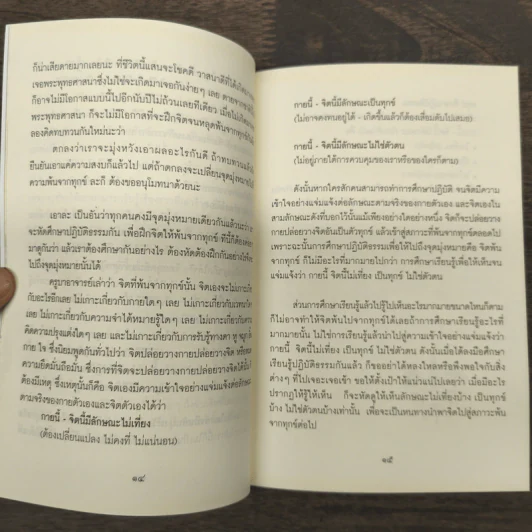 ก็น่าเสียดายมากเลยนะ ที่ชีวิตนี้แสนจะโชคดี วาสนาดีที่ได้เกิด
เจอพระพุทธศาสนาซึ่งไม่ใช่จะเกิดมาเจอกันง่ายๆ เลย
ก็อาจไม่มีโอกาสแบบนี้ไปอีกนับปีไม่ถ้วนเลยทีเดียว เมื่อไม่
พระพุทธศาสนา ก็จะไม่มีโอกาสที่จะฝึกจิตจนหลุดพ้นจากทุกข์
ลองคิดทบทวนกันใหม่นะว่า
ตกลงว่าเราจะมุ่งหวังเอาผลอะไรกันดี ถ้าทบทวนแล้ว
ยืนยันเอาแค่ความสงบก็แล้วไป แต่ถ้าตกลงจะเปลี่ยนจุดมุ่งหมาย
ความพ้นจากทุกข์ ละก็ ต้องขออนุโมทนาด้วยนะ
เอาละ เป็นอันว่าทุกคนคงมีจุดมุ่งหมายเดียวกันแล้วนะว่า
จะหัดศึกษาปฏิบัติธรรมกัน เพื่อฝึกจิตให้พ้นจากทุกข์ ทีนี้ก็ต้อง
มาดูกันว่า แล้วเราต้องศึกษากันอย่างไร ต้องหัดต้องฝึกกันอย่างไร
ไปถึงจุดมุ่งหมายนั้นได้
ครูบาอาจารย์เล่าว่า จิตที่พ้นจากทุกข์นั้น จิตเองจะไม่เกาะเกี่ยวกับ
อะไรอีกเลย ไม่เกาะเกี่ยวกับกายใดๆ เลย ไม่เกาะเกี่ยวกับเวทนาใดๆ
เลย ไม่เกาะเกี่ยวกับความจำได้หมายรู้ใดๆ เลย ไม่เกาะเกี่ยวกับ
คิดความปรุงแต่งใดๆ เลย และไม่เกาะเกี่ยวกับการรับรู้ทางตา หู จมูก ลิ้น
กาย ใจ ซึ่งนิยมพูดกันทั่วไปว่า จิตปล่อยวางกายปล่อยวางจิต หรือหมด
ความยึดมั่นถือมั่น ซึ่งการที่จิตจะปล่อยวางกายปล่อยวางจิตได้
ต้องมีเหตุ ซึ่งเหตุนั้นก็คือ จิตเองมีความเข้าใจอย่างแจ่มแจ้งต่อลักษณะ
ตามจริงของกายตัวเองและจิตตัวเองได้ว่า
กายนี้ - จิตนี้มีลักษณะไม่เที่ยง
(ต้องเปลี่ยนแปลง ไม่คงที่ ไม่แน่นอน)
๑๔
กายนี้ - จิตนี้มีลักษณะเป็นทุกข์
(ไม่อาจคงทนอยู่ได้ - เกิดขึ้นแล้วก็ต้องเสื่อมดับไปเสมอ)
กายนี้ - จิตนี้มีลักษณะไม่ใช่ตัวตน
(ไม่อยู่ภายใต้การควบคุมของเราหรือของใครก็ตาม)
ดังนั้นหากใครสักคนสามารถทำการศึกษาปฏิบัติ จนจิตมีความ
เข้าใจอย่างแจ่มแจ้งต่อลักษณะตามจริงของกายตัวเอง และจิตเองใน
ตามลักษณะดังที่บอกไว้นั้นแม้เพียงอย่างใดอย่างหนึ่ง จิตก็จะปล่อยวาง
กายปล่อยวางจิตอันเป็นตัวทุกข์ แล้วเข้าสู่สภาวะที่พ้นจากทุกข์ตลอดไป
เพราะฉะนั้นการศึกษาปฏิบัติธรรมเพื่อให้ไปถึงจุดมุ่งหมายคือ จิตพ้น
จากทุกข์ ก็ไม่มีอะไรที่มากมายไปกว่า การศึกษาเรียนรู้เพื่อให้จิตเห็น
จนแจ่มแจ้งว่า กายนี้ จิตนี้ไม่เที่ยง เป็นทุกข์ ไม่ใช่ตัวตน
ส่วนการศึกษาเรียนรู้แล้วไปรู้ไปเห็นอะไรมากมายขนาดไหนก็ตาม
ก็ไม่อาจทำให้จิตพ้นไปจากทุกข์ได้เลยถ้าการศึกษาเรียนรู้อะไรที่
มากมายนั้น ไม่ใช่การเรียนรู้แล้วนำไปสู่ความเข้าใจอย่างแจ่มแจ้งว่า
กายนี้ จิตนี้ ไม่เที่ยง เป็นทุกข์ ไม่ใช่ตัวตน ดังนั้นเมื่อได้ลงมือศึกษา
เรียนรู้ปฏิบัติธรรมกันแล้ว ก็ขออย่าได้หลงใหลหรือพึงพอใจกับสิ่ง
ต่างๆ ที่ไปเจอะเจอเข้า ขอให้ตั้งเป้าให้แน่วแน่ไปเลยว่า เมื่อมีอะไร
ปรากฏให้รู้ให้เห็น ก็จะหัดดูให้เห็นลักษณะไม่เที่ยงบ้าง เป็นทุกข์
บ้าง ไม่ใช่ตัวตนบ้างเท่านั้น เพื่อจะเป็นหนทางนำพาจิตไปสู่สภาวะพ้น
จากทุกข์ต่อไป
๑๕